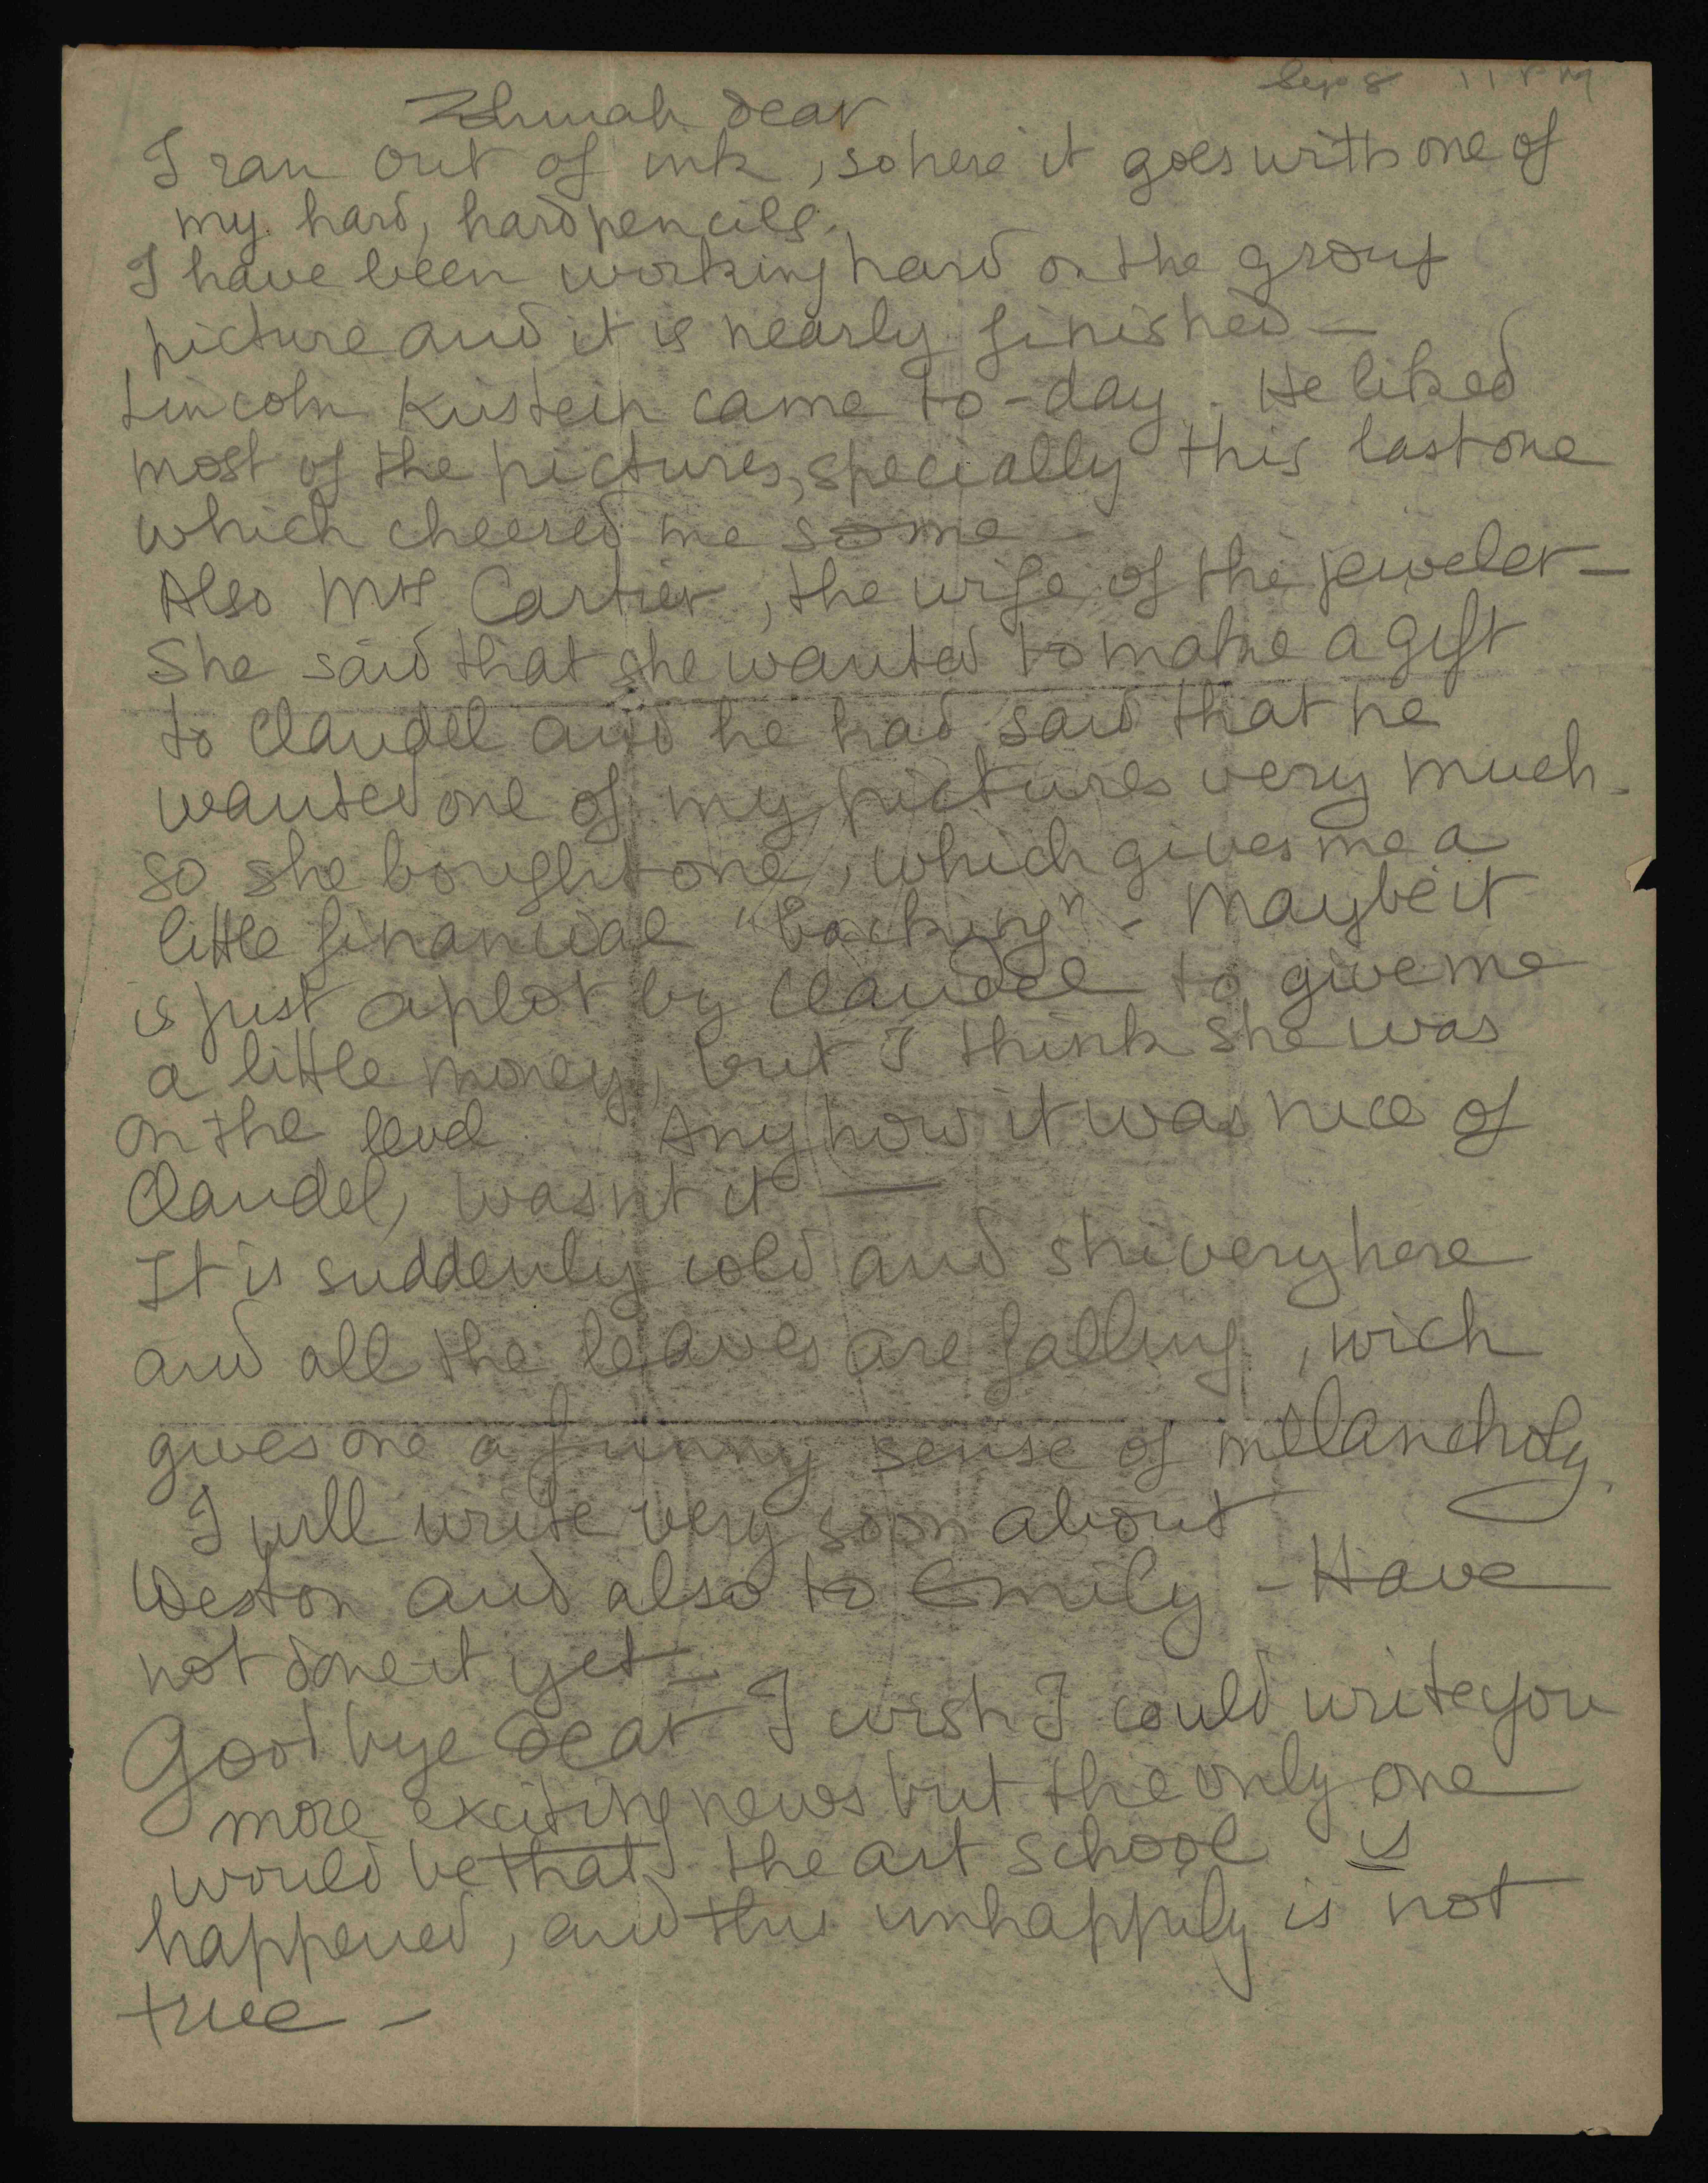 Sep 8 11 PM
Zhmah dear
I ran out of ink, so here it goes with one of
my hard, hard pencils.
I have been working hard on the group
picture and it is nearly finished —
Lincoln Kirstein came to-day. He liked
most of the pictures, specially this last one
which cheered me some —
Also Mrs Cartier, the wife of the jeweler —
She said that she wanted to make a gift
to Claudel and he had said that he
wanted one of my pictures very much.
so she bought one, which gives me a
little financial "backing" - Maybe it
is just a plot by Claudel to give me
a little money, but I think she was
on the level. Any how it was nice of
Claudel, wasn't it —
It is suddenly cold and shivery here
and all the leaves are falling, wich
gives one a funny sense of melancholy.
I will write very soon about
Weston and also to Emily - Have
not done it yet —
Good bye dear I wish I could write you
more exciting news but the only one
would be that the art school is
happened, and this unhappily is not
true -